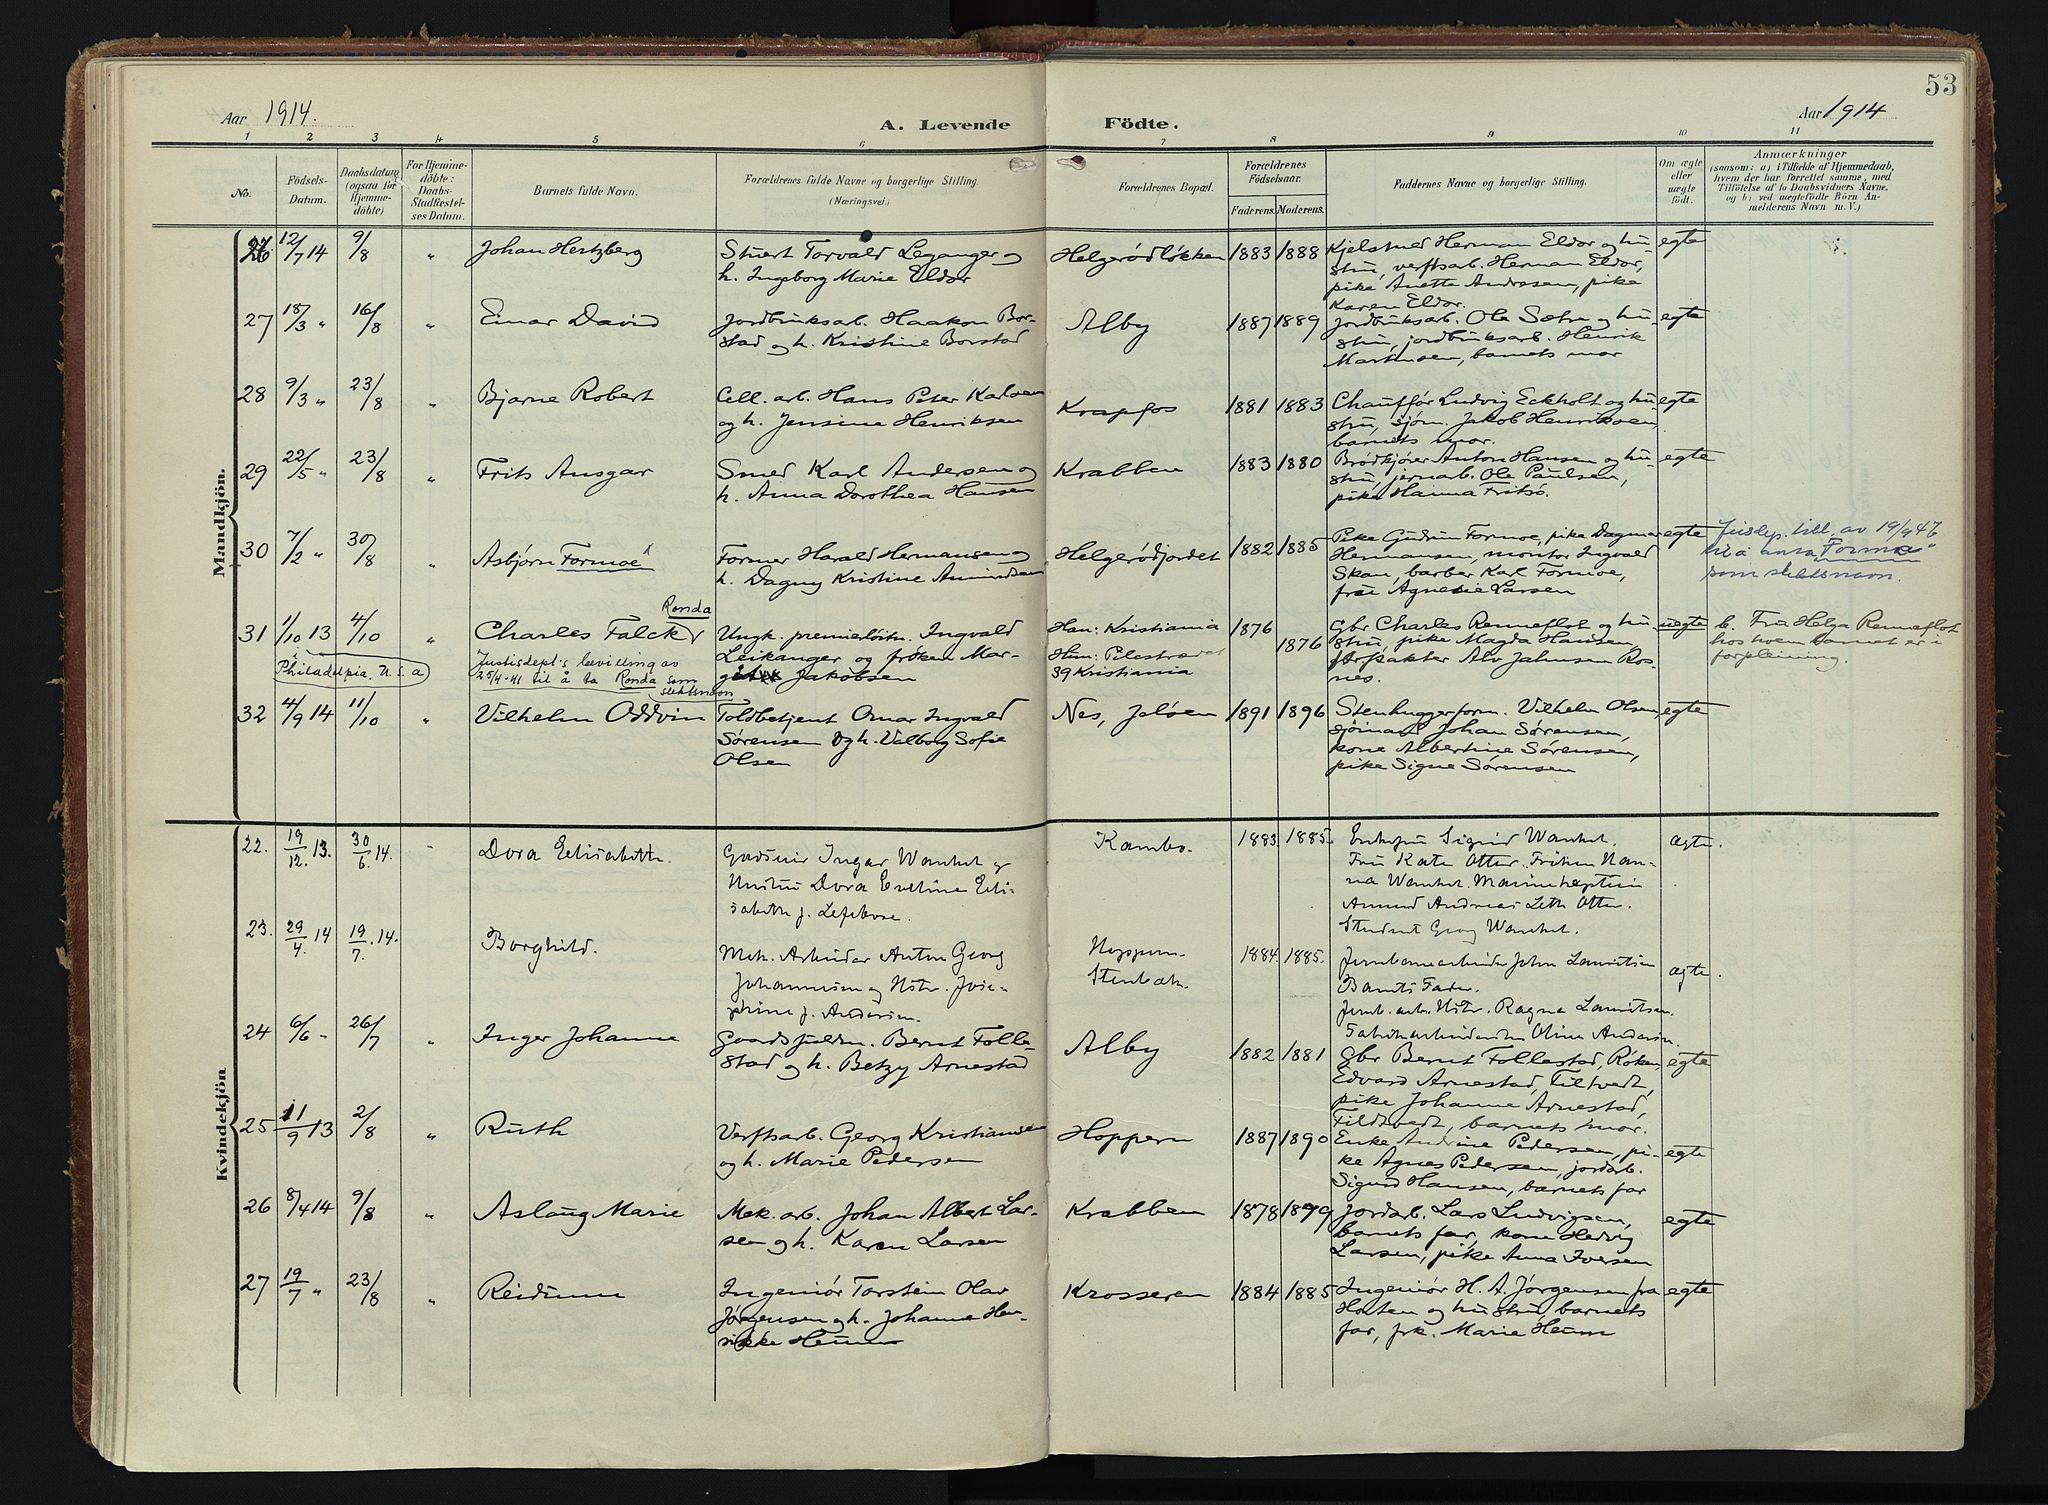 53
Aar 1914.
A. Levende
Födte.
Aar 1914
1 2 3 4 5 6 7 8 9 10 11
No.
Födsels-
Datum.
Daabsdatum
(ogsaa for
Hjemme-
döbte)
For Hjemme-
döbte:
Daabs-
Stadfæstel-
ses Datum.
Barnets fulde Navn.
Forældrenes fulde Navne og borgerlige Stilling.
(Næringsvei.)
Forældrenes Bopæl.
Forældrenes
Födselsaar.
Faderens. Moderens.
Faddernes Navne og borgerlige Stilling.
Om ægte
eller
uægte
födt.
Anmærkninger
(saasom: a) i Tilfælde af Hjemmedaab,
hvem der har forrettet samme, med
Tilföielse af to Daabsvidners Navne,
og b) ved uægtefödte Börn An-
melderens Navn m. V.)
Mandkjön.
26 12/7 14 9/8 " Johan Hertzberg
Stuert Torvald Leganger og
h. Ingeborg Marie Eldør
Helgerødløkken 1883 1888
Kjelsmed Herman Eldør og hu
stru, verftsarb. Herman Eldør,
pike Anette Andresen, pike
Karen Eldør.
egte
27 18/3 " 16/8 " Einar David
Jordbruksarb. Haakon Bor-
stad og h. Kristine Borstad
Alby 1887 1889
Jordbruksarb. Ole Sætre og hu-
stru, jordbruksarb. Henrik
Martinsen, barnets mor
egte
28 9/3 " 23/8 " Bjarne Robert
Cell. arb. Hans Peter Karlsen
og h. Jensine Henriksen
Krapfos 1881 1883
Chauffør Ludvig Eckholt og hu
stru, sjøm. Jakob Henriksen,
barnets mor.
egte
29 22/5 " 23/8 " Frits Ansgar
Smed Karl Andersen og
h. Anna Dorothea Hansen
Krabben 1883 1880
Brødkjører Anton Hansen og hu-
stru, jernarb. Ole Paulsen,
pike Hanna Fritsø.
egte
30 7/2 " 30/8 " Asbjørn Formoe
Former Harald Hermansen og
h. Dagny Kristine Amundsen
Helgerødjordet 1882 1885
Pike Gudrun Formoe, pike Dagmar
Hermansen, montør Ingvald
Skau, barber Karl Formoe,
frøi Agnesie Larsen
egte
Jusdep. till. av 19/9 47
til å anta "Formoe"
som slektsnavn.
31 1/10 13 4/10 " Charles Falck Ronda
Philadelpia. U.S.a
Justisdept's bevilling av
25/4-41 til å ta Ronda som
slektsnavn
Ungk. premierløitn. Ingvald
Leikanger og frøken Mar-
Jakobsen
Han: Kristiania
Hun: Pilestrædet
39 Kristiania
1876 1876
Gbr Charles Renneflot og hu
stru, pike Magda Hansen
forpakter Alv Jahnsen Ros-
nes.
uegte
b. Fru Helga Renneflot
hos hvem barnet er i
forpleining.
32 4/9 14 11/10 " Vilhelm Oddvin
Toldbetjent Omar Ingvald
Sørensen og h. Valborg Sofie
Olsen
Nes, Jeløen 1891 1896
Stenhuggerform. Vilhelm Olsen,
sjømand Johan Sørensen,
kone Albertine Sørensen,
pike Signe Sørensen
egte
Kvindekjön
22. 19/12 13. 30/6 14. Dora Elisabeth.
Ingar Wankel og
Hustru Dora Eveline Eli-
sabeth f. Lefebvre.
Kambo. 1883. 1885.
Enkefru Sigrid Wankel.
Fru Kate Otter. Frøken Nan-
na Wankel. Marinekaptein
Amund Andreas Leth Otter.
Student Georg Wankel.
ægte.
23. 29/4 14 19/7. 14. Borghild.
Mek. Arbeider Anton Georg
Johannesen og Hstr. Jose-
phine f. Andersen.
Hoppern
Stenbæk.
1884. 1885.
Jernbanearbeider John Lauritsen
Barnets Fader.
Jernb. arb. Hstr. Ragna Lauritsen.
Olina Andersen.
ægte.
24 6/6 - 26/7 " Inger Johanne
Gaardsfuldm. Bernt Folle-
stad og h. Betzy Arnestad
Alby 1882 1881
Gbr Bernt Follestad, Røken,
Edvard Arnestad, Filtvedt,
pike Johanne Arnestad,
Fildtvedt, barnets mor.
egte
25 11/9 13 2/8 " Ruth
Verftsarb. Georg Kristiansen
og h. Marie Pedersen
Hoppern 1887 1890
Enke Andrine Pedersen, pi-
ke Agnes Pedersen, jordarb.
Sigurd Hansen, barnets far
egte
26 8/4 14 9/8 " Aslaug Marie
Mek. arb. Johan Albert Lar-
sen og h. Karen Larsen
Krabben 1878 1899
Jordarb. Lars Ludvigsen,
barnets far, kone Hedvig
Larsen, pike Anna Iversen
egte
27 19/7 " 23/8 " Reidunn
Ingeniør Torstein Olav
Jørgensen og h. Johanne Hen-
rikke Heum
Krosseren 1884 1885
Ingeniør H. A. Jørgensen fra
Holten og hustru, barnets
far, frk. Marie Heum
egte